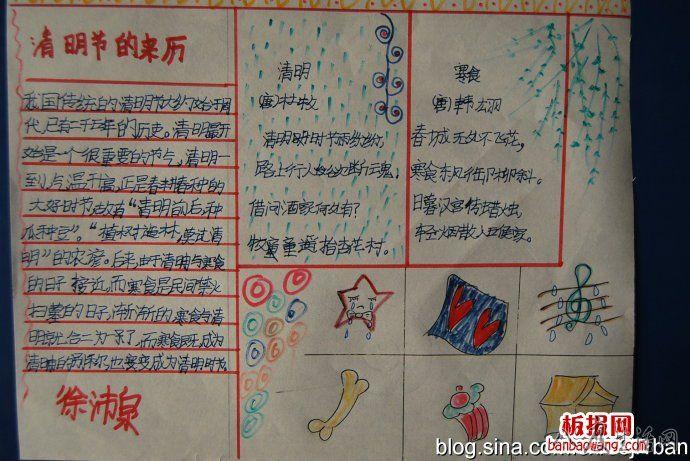 清明节的来历
我国传统的清明节大约始于周
代，已有二千五百年的历史。清明最开
始是一个很重要的节气，清明一
到，气温升高，正是春耕春种的
大好时节，故有“清明前后，种
瓜种豆”。“植树造林，莫过清
明”的农谚。后来，由于清明与寒食
的日子接近，而寒食是民间禁火
扫墓的日子，渐渐的，寒食与清
明就合二为一了，而寒食既成为
清明的别称，也变成为清明时节
徐沛泉
清明
(唐)杜牧
清明时节雨纷纷，
路上行人欲断魂，
借问酒家何处有？
牧童遥指杏花村。
寒食
(唐)韩翃
春城无处不飞花，
寒食东风御柳斜。
日暮汉宫传蜡烛，
轻烟散入五侯家。
板报网
www.banbaowang.com
blog.sina.co
ban